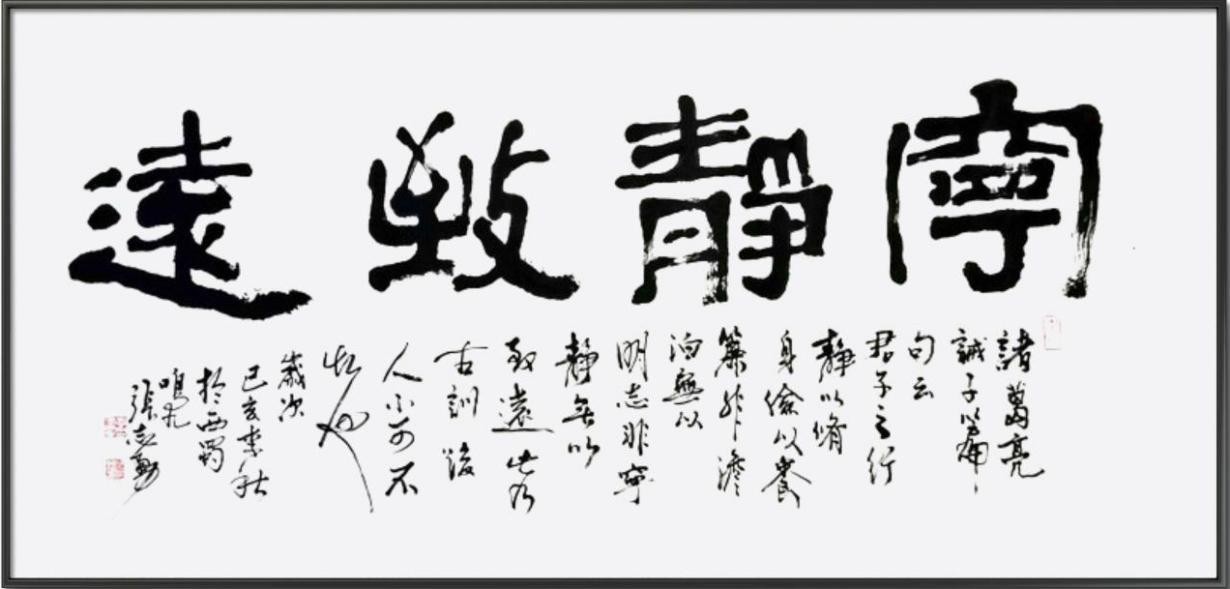 寧靜致遠
諸葛亮
誡子篇
句云
君子之行
靜以脩
身儉以養
非澹
泊無以
明志非寧
靜無以
致遠此乃
古訓後
人不可不
也
歲次
己亥季秋
於西蜀
張志勇